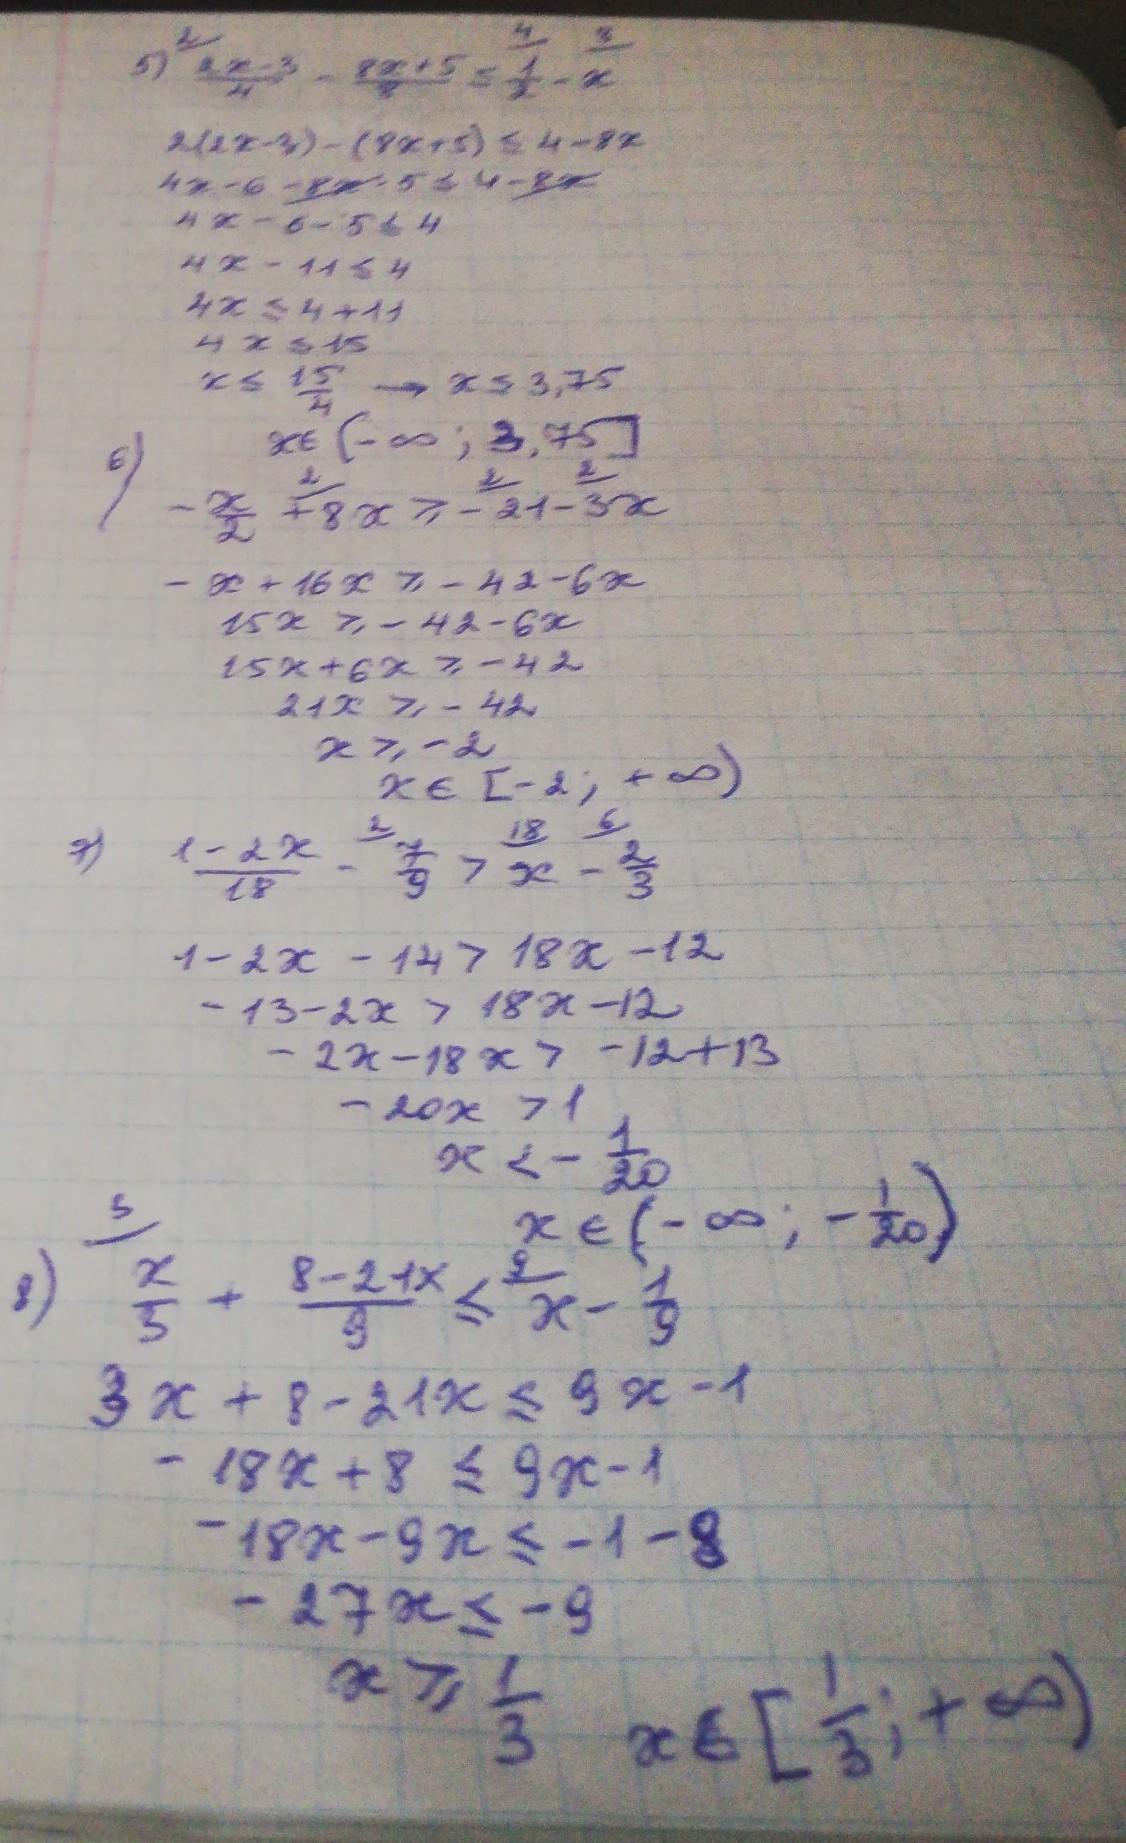 5) 2 4 8
(2x-3)/4 - (8x+5)/8 ≤ 1/2 - x
2(2x-3)-(8x+5) ≤ 4-8x
4x-6-8x-5 ≤ 4-8x
4x-6-5 ≤ 4
4x-11 ≤ 4
4x ≤ 4+11
4x ≤ 15
x ≤ 15/4 → x ≤ 3,75
x ∈ (-∞; 3,75]
6) 2 2 2
-x/2 + 8x ⩾ -21-3x
-x+16x ⩾ -42-6x
15x ⩾ -42-6x
15x+6x ⩾ -42
21x ⩾ -42
x ⩾ -2
x ∈ [-2; +∞)
7) 2 18 6
(1-2x)/18 - 7/9 > x - 2/3
1-2x-14 > 18x-12
-13-2x > 18x-12
-2x-18x > -12+13
-20x > 1
x < -1/20
x ∈ (-∞; -1/20)
8) 3 9
x/3 + (8-21x)/9 ≤ x - 1/9
3x+8-21x ≤ 9x-1
-18x+8 ≤ 9x-1
-18x-9x ≤ -1-8
-27x ≤ -9
x ⩾ 1/3 x ∈ [1/3; +∞)